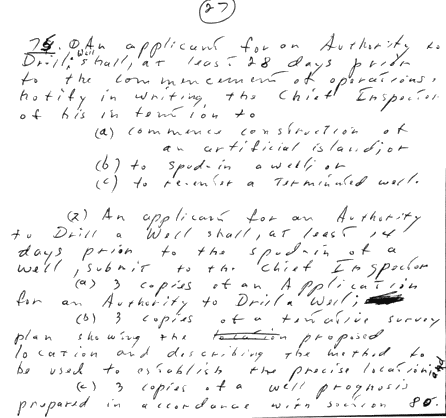 (27)
75. (1) An applicant for an Authority to
Drill a Well shall, at least 28 days prior
to the commencement of operations,
notify in writing the Chief Inspector
of his intention to
(a) commence construction of
an artificial island; or
(b) to spud-in a well; or
(c) to re-enter a terminated well.
(2) An applicant for an Authority
to Drill a Well shall, at least 14
days prior to the spud-in of a
well, submit to the Chief Inspector
(a) 3 copies of an Application
for an Authority to Drill a Well;
(b) 3 copies of a tentative survey
plan showing the proposed
location and describing the method to
be used to establish the precise location; and
(c) 3 copies of a well prognosis
prepared in accordance with section 80.